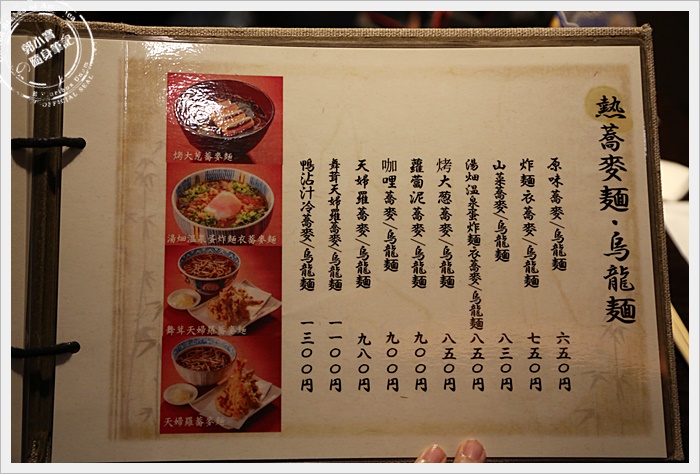 熱蕎麥麵・烏龍麵
原味蕎麥/烏龍麵 六五〇円
炸麵衣蕎麥/烏龍麵 七五〇円
山菜蕎麥/烏龍麵 八三〇円
湯畑溫泉蛋炸麵衣蕎麥/烏龍麵 八五〇円
烤大葱蕎麥/烏龍麵 八五〇円
蘿蔔泥蕎麥/烏龍麵 九〇〇円
咖哩蕎麥/烏龍麵 九〇〇円
天婦羅蕎麥/烏龍麵 九八〇円
舞茸天婦羅蕎麥/烏龍麵 一一〇〇円
鴨沾汁冷蕎麥/烏龍麵 一三〇〇円
烤大葱蕎麥麵
湯畑溫泉蛋炸麵衣蕎麥麵
舞茸天婦羅蕎麥麵
天婦羅蕎麥麵
郭小寶
隨身筆記
OFFICIAL SEAL